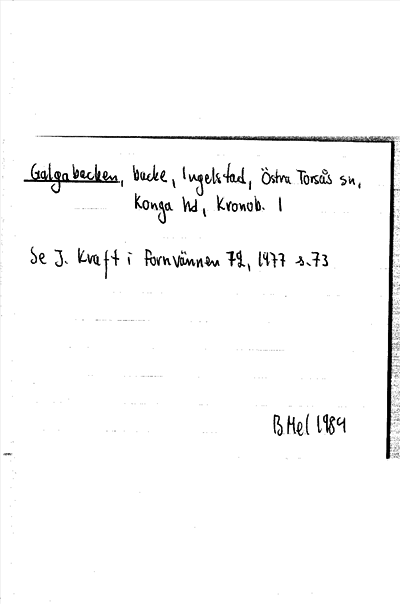 Galgabacken, backe, Ingelstad, Östra Torsås sn,
Konga hd, Kronob. l
Se J. Kraft i Fornvännen 72, 1977 s. 73
BHel 1989